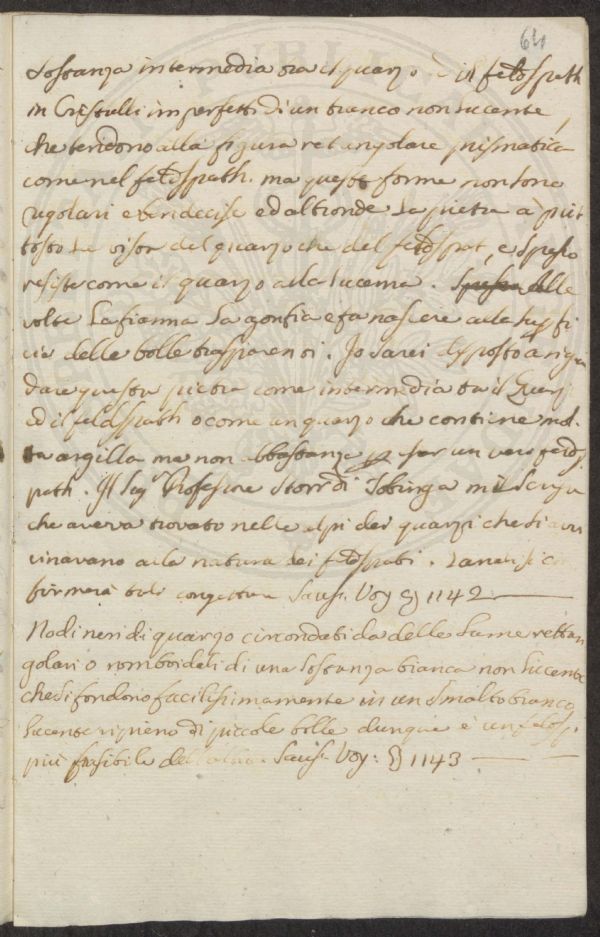 64
Sostanza intermedia tra il quarzo ed il feldspath
in Cristalli imperfetti di un bianco non lucente,
che tendono alla figura rettangolare prismatica
come nel feldspath. ma queste forme non sono
regolari e ben decise ed altronde la pietra à piut
tosto la del quarzo che del feldspat, e spesso
resiste come il quarzo alla lucerna. alle
volte la fiamma la gonfia e fa nascere alla supfi
cie delle bolle trasparenti. Io sarei disposto a rigu
dare questa pietra come intermedia tra il Quarz
ed il feldspath o come un quarzo che contiene mol-
ta argilla ma non abbastanza p far un vero felds
path. Il Sigr Professore Storr di Tobinga mi
che aveva trovato nelle alpi dei quarzi che si avi
cinavano alla natura dei feldspati. L'analisi con
firmerà tale congettura Sauss. Voy § 1142
Nodi neri di quarzo circondati da delle lame rettan
golari o romboidali di una sostanza bianca non lucente
che si fondono facilissimamente in un smalto bianco
lucente ripieno di piccole bolle dunque è un feldsp.
più fusibile dell'altro. Sauss. Voy: § 1143